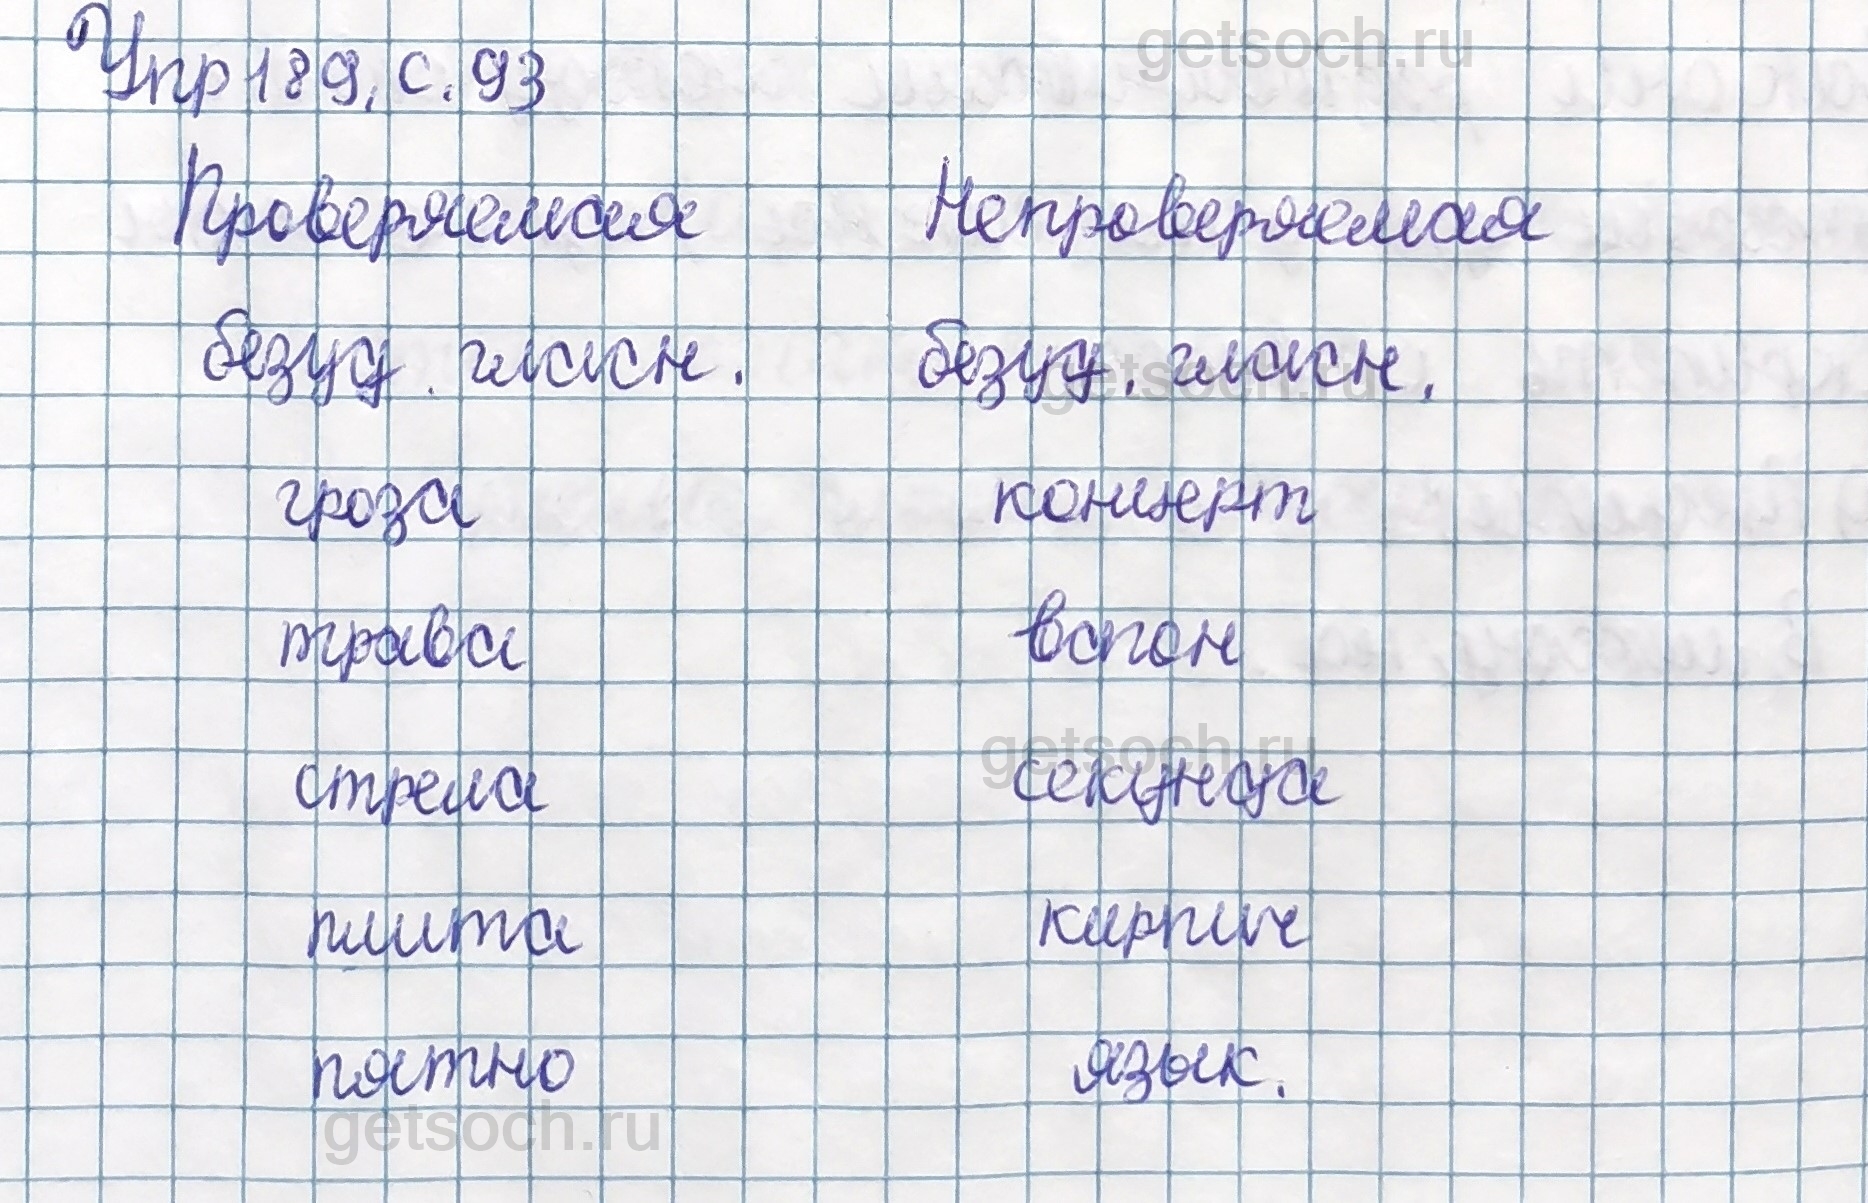 getsoch.ru
Упр 189, с. 93
Проверяемая Непроверяемая
безуд. гласн. безуд. гласн.
getsoch.ru
гроза концерт
трава вагон
getsoch.ru
стрела секунда
плита кирпич
пятно язык.
getsoch.ru